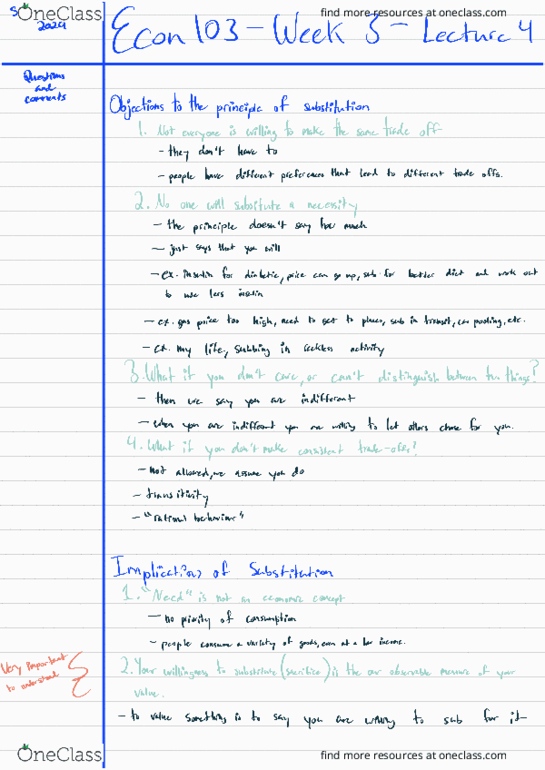 find more resources at oneclass.com
OneClass
S
2024
Econ 103 - Week 5 - Lecture 4
Questions
and
comments
Objections to the principle of substitution
1. Not everyone is willing to make the same trade off
- they don't have to
- people have different preferences that lead to different trade offs.
2. No one will substitute a necessity
- the principle doesn't say how much
- just says that you will
- ex. insulin for diabetic, price can go up, sub for better diet and work out
to use less insulin
- ex. gas price too high, need to get to places, sub in transit, car pooling, etc.
- ex. my life, subbing in reckless activity
3. What if you don't care, or can't distinguish between two things?
- then we say you are indifferent
- when you are indifferent you are willing to let others chose for you.
4. What if you don't make consistent trade-offs?
- not allowed, we assume you do
- transitivity
- "rational behaviour"
Implications of Substitution
1. "Need" is not an economic concept
- no priority of consumption
- people consume a variety of goods, even at a low income.
Very important
to understand
2. Your willingness to substitute (sacrifice) is the our observable measure of your
value.
- to value something is to say you are willing to sub for it
OneClass
find more resources at oneclass.com